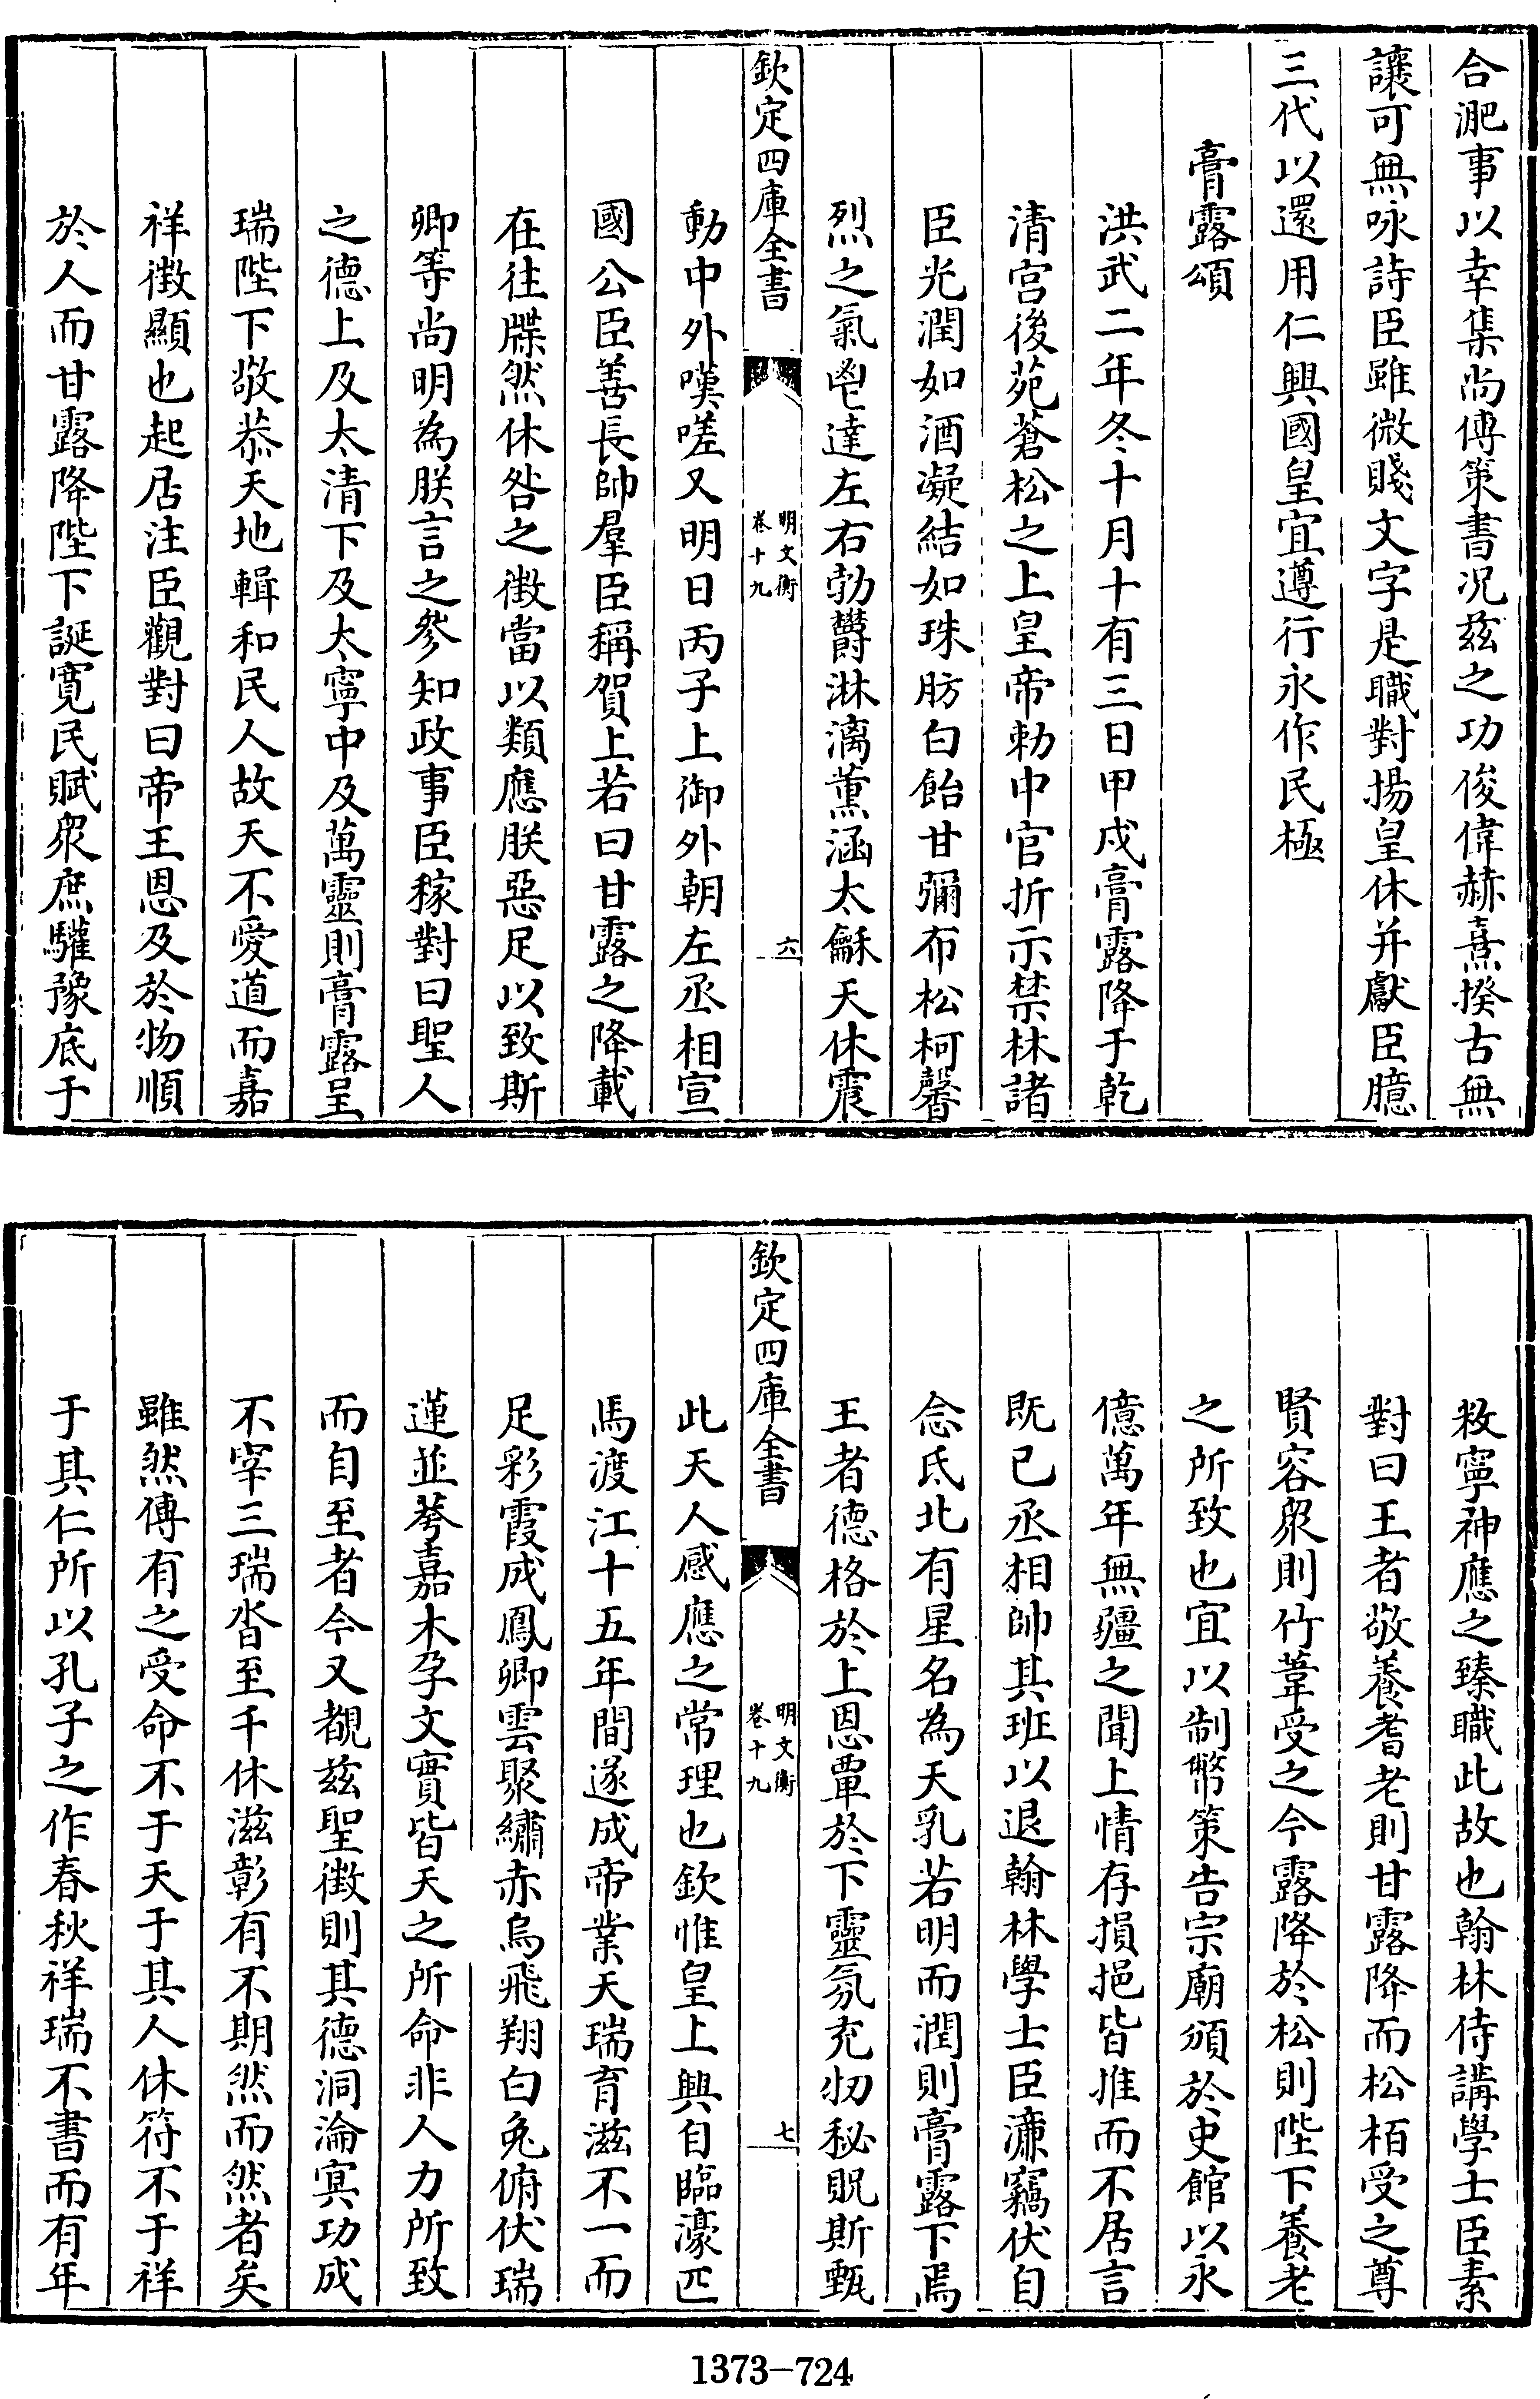 合淝事以幸集尚傳策書况兹之功俊偉赫熹揆古無
讓可無咏詩臣雖微賤文字是職對揚皇休并獻臣臆
三代以還用仁興國皇宜遵行永作民極
膏露頌
洪武二年冬十月十有三日甲戌膏露降于乾
清宫後苑蒼松之上皇帝勅中官折示禁林諸
臣光潤如酒凝結如珠肪白飴甘彌布松柯馨
烈之氣鬯達左右勃欝淋漓薰涵太龢天休震
欽定四庫全書
明文衡
卷十九
六
動中外嘆嗟又明日丙子上御外朝左丞相宣
國公臣善長帥羣臣稱賀上若曰甘露之降載
在往牒然休咎之徵當以類應朕惡足以致斯
卿等尚明為朕言之叅知政事臣稼對曰聖人
之德上及太清下及太寧中及萬靈則膏露呈
瑞陛下敬恭天地輯和民人故天不愛道而嘉
祥徵顯也起居注臣觀對曰帝王恩及於物順
於人而甘露降陛下誕寛民賦衆庶驩豫底于
敉寧神應之臻職此故也翰林侍講學士臣素
對曰王者敬養耆老則甘露降而松栢受之尊
賢容衆則竹葦受之今露降於松則陛下養老
之所致也宜以制幣策告宗廟頒於史館以永
億萬年無疆之聞上情存損挹皆推而不居言
既已丞相帥其班以退翰林學士臣濂竊伏自
念氐北有星名為天乳若明而潤則膏露下焉
王者德格於上恩覃於下靈氛充牣秘貺斯甄
欽定四庫全書
明文衡
卷十九
七
此天人感應之常理也欽惟皇上興自臨濠匹
馬渡江十五年間遂成帝業天瑞育滋不一而
足彩霞成鳳卿雲聚繡赤烏飛翔白兔俯伏瑞
蓮並萼嘉木孕文實皆天之所命非人力所致
而自至者今又覩兹聖徵則其德洞淪冥功成
不宰三瑞沓至千休滋彰有不期然而然者矣
雖然傳有之受命不于天于其人休符不于祥
于其仁所以孔子之作春秋祥瑞不書而有年
1373-724